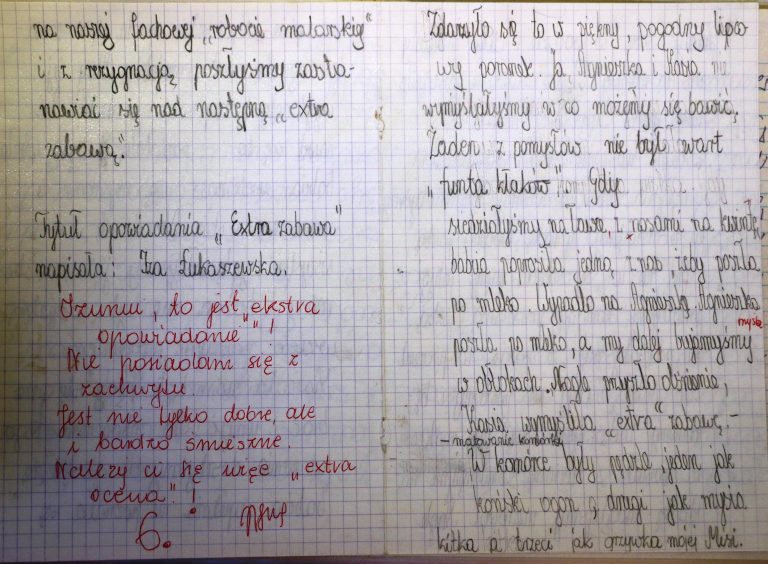 na naszej fachowej „robocie malarskiej"
i z rezygnacją poszłyśmy zasta-
nawiać się nad następną „extra
zabawą."
Tytuł opowiadania „Extra zabawa"
napisała: Iza Łukaszewska.
Izuniu, to jest „ekstra
opowiadanie"!
Nie posiadam się z
zachwytu.
Jest nie tylko dobre, ale
i bardzo śmieszne.
Należy ci się więc „extra
ocena"!
6.
Zdarzyło się to w piękny, pogodny lipco
wy poranek. Ja, Agnieszka i Kasia
wymyślałyśmy w co możemy się bawić.
Żaden z pomysłów nie był wart
„funta kłaków". Gdy
siedziałyśmy na ławce, z nosami na kwintę,
babcia poprosiła jedną z nas, żeby poszła
po mleko. Wypadło na Agnieszkę. Agnieszka
poszła po mleko, a my dalej bujamyśmy
w obłokach. Nagle przyszło olśnienie,
Kasia wymyśliła „extra" zabawę, -
- malowanie komórki
W komórce były pędzle, jeden jak
koński ogon, drugi jak mysia
kitka a trzeci jak grzywka mojej Misi.